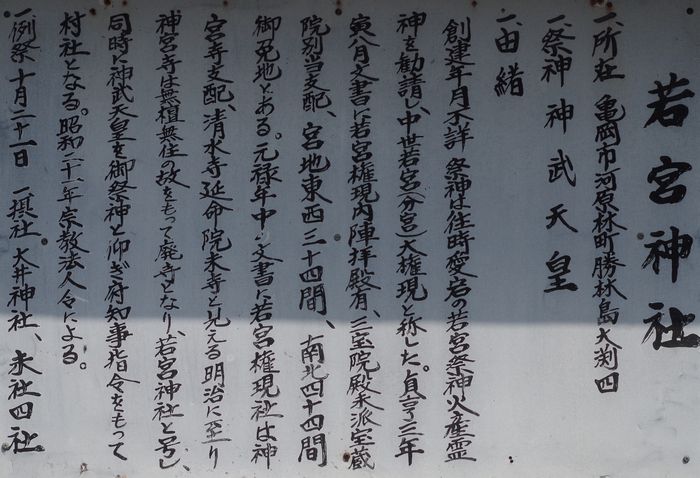 若宮神社
一、所在 亀岡市河原林町勝林島大渕四
一、祭神 神武天皇
一、由緒
創建年月不詳 祭神は往時愛宕の若宮祭神火産霊
神を勧請し、中世若宮(分宮)大権現と称した。貞享三年
寅八月文書に若宮権現内陣拝殿有、三宝院殿末派宝蔵
院別当支配、宮地東西三十四間、南北四十四間
御免地とある。元禄年中の文書に若宮権現社は神
宮寺支配、清水寺延命院末寺と見える明治に至り
神宮寺は無檀無住の故をもって廃寺となり、若宮神社と号し、
同時に神武天皇を御祭神と仰ぎ府知事指令をもって
村社となる。昭和二十一年宗教法人令による。
一、例祭 十月二十一日 一、摂社 大井神社、末社四社